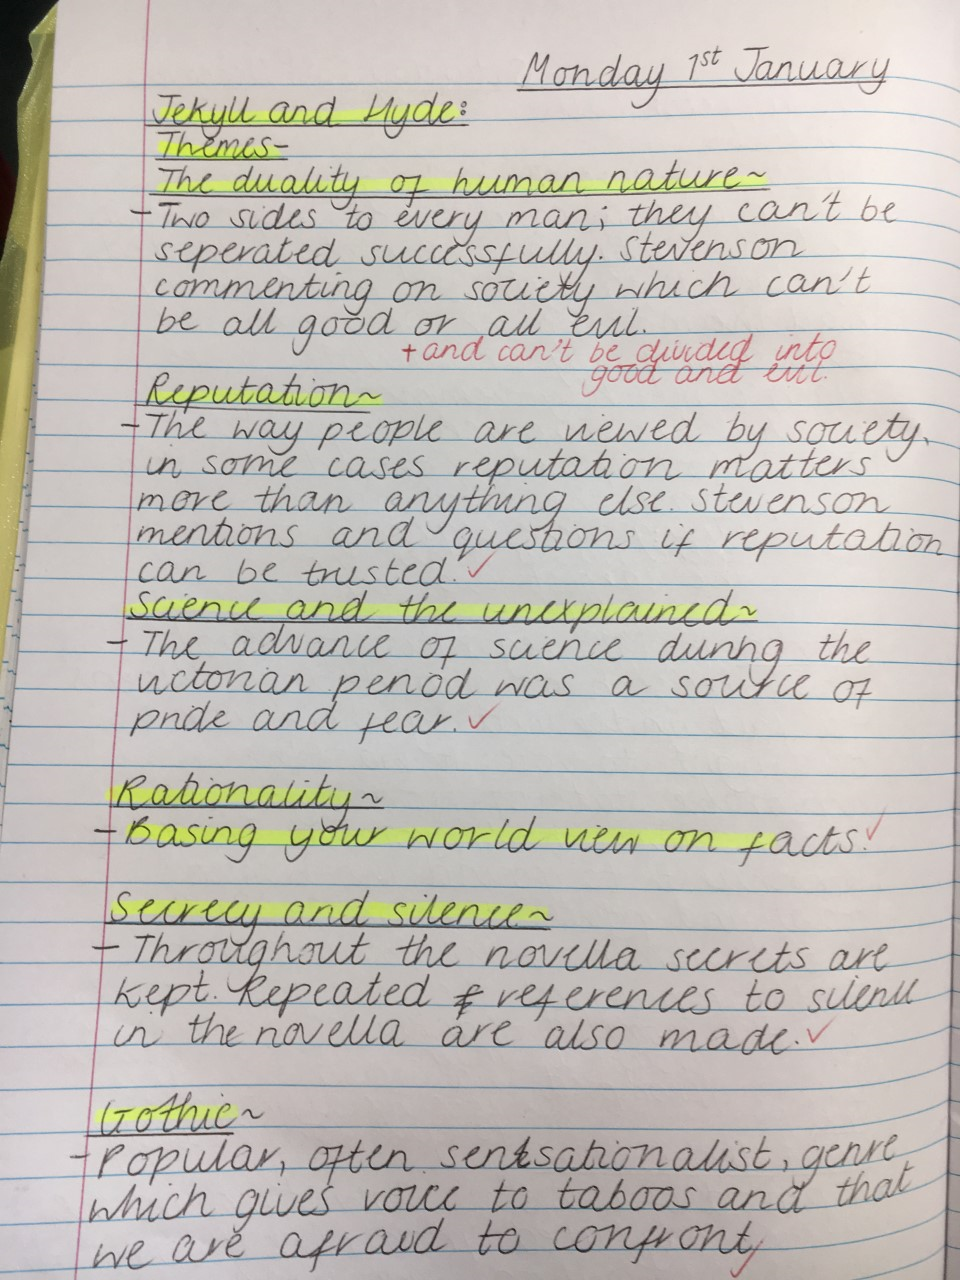 Monday 1st January
Jekyll and Hyde:
Themes-
The duality of human nature~
- Two sides to every man; they can't be
seperated successfully. Stevenson
commenting on society which can't
be all good or all evil.
+ and can't be divided into
good and evil.
Reputation~
- The way people are viewed by society,
in some cases reputation matters
more than anything else. Stevenson
mentions and questions if reputation
can be trusted. ✓
Science and the unexplained~
- The advance of science during the
victorian period was a source of
pride and fear. ✓
Rationality~
- Basing your world view on facts. ✓
Secrecy and silence~
- Throughout the novella secrets are
kept. Repeated references to silence
in the novella are also made. ✓
Gothic~
- Popular, often sensationalist, genre
which gives voice to taboos and that
we are afraid to confront ✓